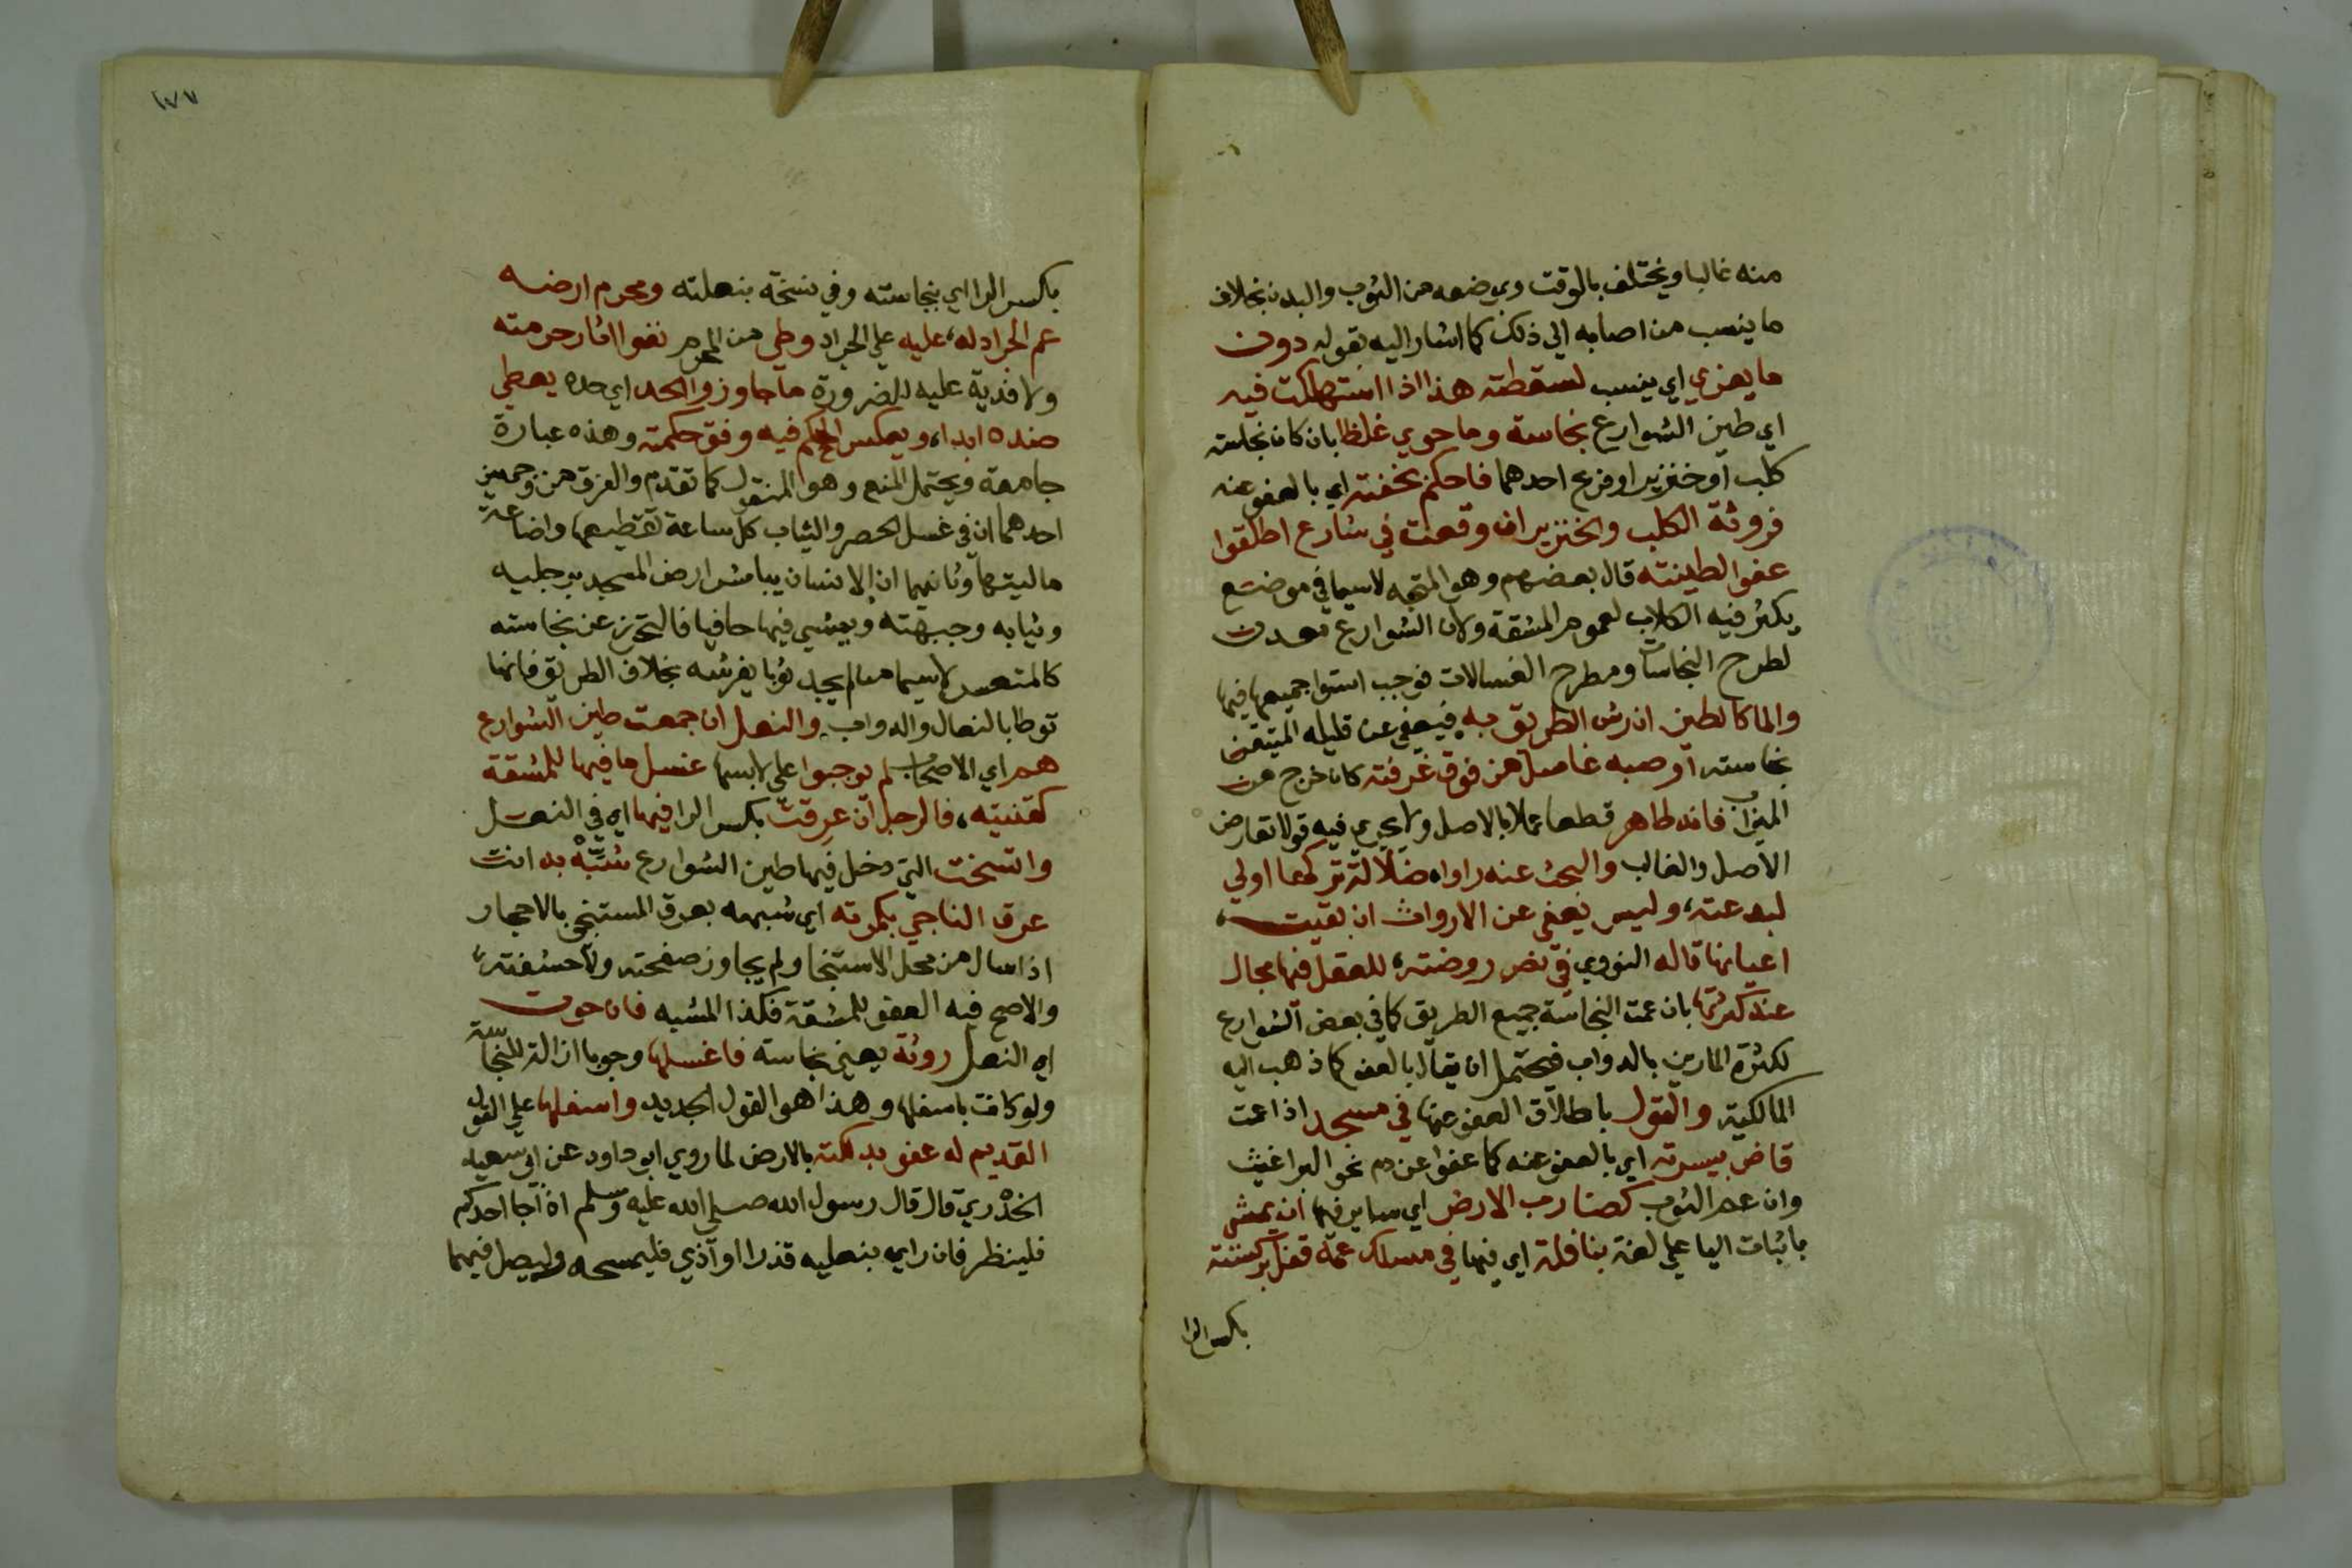 منه غالبا ويختلف بالوقت وموضعه من الثوب والبدن بخلاف
ما ينسب من اصابه الي ذلك كما اشار اليه بقوله دون
ما يعزي اي ينسب لسقطته هذا اذا استهلكت فيه
اي طين الشوارع نجاسة وما حوي غلظا بان كان نجاسته
كلب او خنزير او فرع احدهما فاحكم بخفته اي بالعفو عنه
فروثة الكلب والخنزير ان وقعت في شارع اطلقوا
عفوا لطينته قال بعضهم وهو المتجه لاسيما في موضع
يكثر فيه الكلاب لعموم المشقة ولان الشوارع معدن
لطرح النجاسات ومطرح الغسالات فوجب استوا جميعها فيها
والما كالطين ان رش الطريق به فيعفي عن قليله المتيقن
نجاسته او صبه غاسل من فوق غرفته كان خرج من
الميزاب فانه طاهر قطعا عملا بالاصل ولا يجري فيه قولا تعارض
الاصل والغالب والبحث عنه راواه ضلالة تركها اولي
لبدعته، وليس يعفي عن الارواث ان بقيت،
اعيانها قاله النووي في نص روضته، للعقل فيها مجال
عند كثرتها بان عمت النجاسة جميع الطريق كما في بعض الشوارع
لكثرة المارين بالدواب فيحتمل ان يقال بالعفو كما ذهب اليه
المالكية والقول باطلاق العفو عنها في مسجد اذا عمت
قاض بيسرته اي بالعفو عنه كما عفوا عن دم نحو البراغيث
وان عم الثوب كضارب الارض اي ساير فيها ان يمشي
باثبات اليا علي لغة بنافلة اي فيها في مسلك عمه قفل بركسته
بكسر الرا
١٧٧
بكسر الرا اي بنجاسته وفي نسخة بنعلته ومحرم ارضه
عم الجراد له، عليه علي الجراد وطي من المحرم نفوا اثار حرمته
ولا فدية عليه للضرورة ما جاوز والحد اي حده يعطي
ضده ابدا، ويعكس الحكم فيه وفق حكمته وهذه عبارة
جامعة ويحتمل المنع وهو المنقول كما تقدم والفرق من وجهين
احدهما ان في غسل الحصر والثياب كل ساعة تقطيعها واضاعة
ماليتها وثانيهما ان الانسان يباشر ارض المسجد برجليه
وثيابه وجبهته ويمشي فيها حافيا فالتحرز عن نجاسته
كالمتعسر لاسيما من لم يجد ثوبا يفرشه بخلاف الطريق فانها
توطا بالنعال والدواب والنعل ان جمعت طين الشوارع
هم اي الاصحاب لم يوجبوا علي لابسها غسل ما فيها للمشقة
كقنيته، فالرجل ان عرقت بكسر الرا فيها اي في النعل
واتسخت التي دخل فيها طين الشوارع شبه به انت
عرق الناجي بكمرته اي شبهه بعرق المستنجي بالاحجار
اذا سال من محل الاستنجا ولم يجاوز صفحته ولا حشفته،
والاصح فيه العفو للمشقة فكذا المشبه فان حوت
اي النعل روثة يعني نجاسة فاغسلها وجوبا ازالة للنجاسة
ولو كانت باسفلها وهذا هو القول الجديد واسفلها علي القول
القديم له عفو بدلكته بالارض لما روي ابو داود عن ابي سعيد
الخدري قال قال رسول الله صلي الله عليه وسلم اذا جا احدكم
فلينظر فان راي بنعليه قذرا او اذي فليمسحه وليصل فيهما